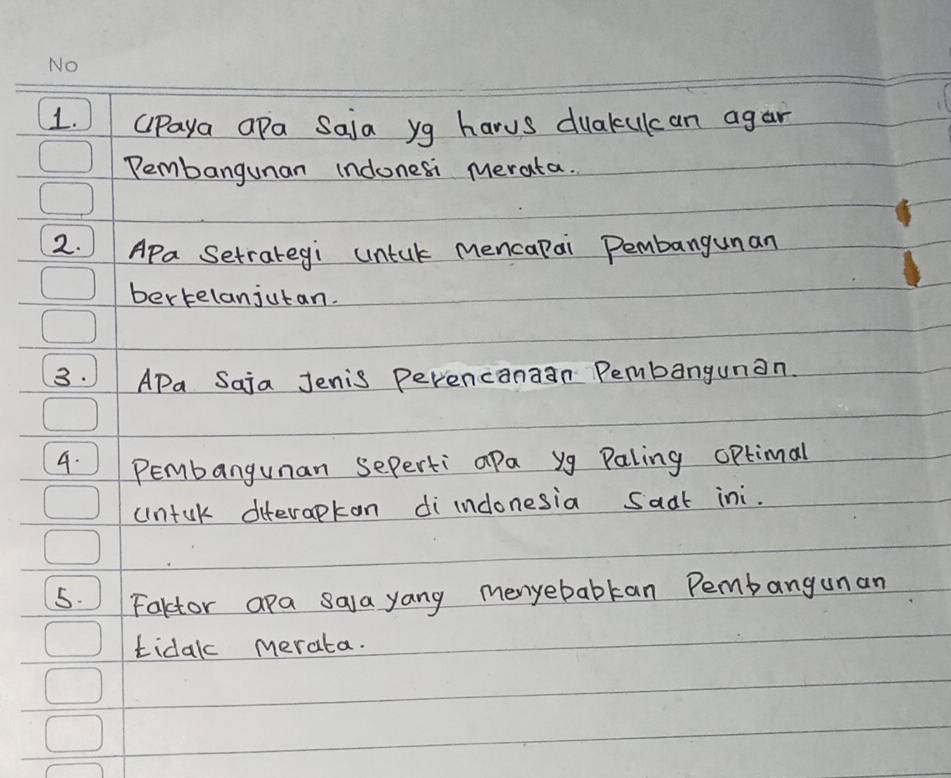 No
1. Upaya apa saja yg harus duakulcan agar
Pembangunan indonesi merata.
2. Apa Setrategi untuk mencapai Pembangunan
berkelanjutan.
3. Apa saja Jenis Perencanaan Pembangunan.
4. Pembangunan seperti apa yg Paling optimal
untuk diterapkan di indonesia saat ini.
5. Faktor apa saja yang menyebabkan Pembangunan
tidak merata.